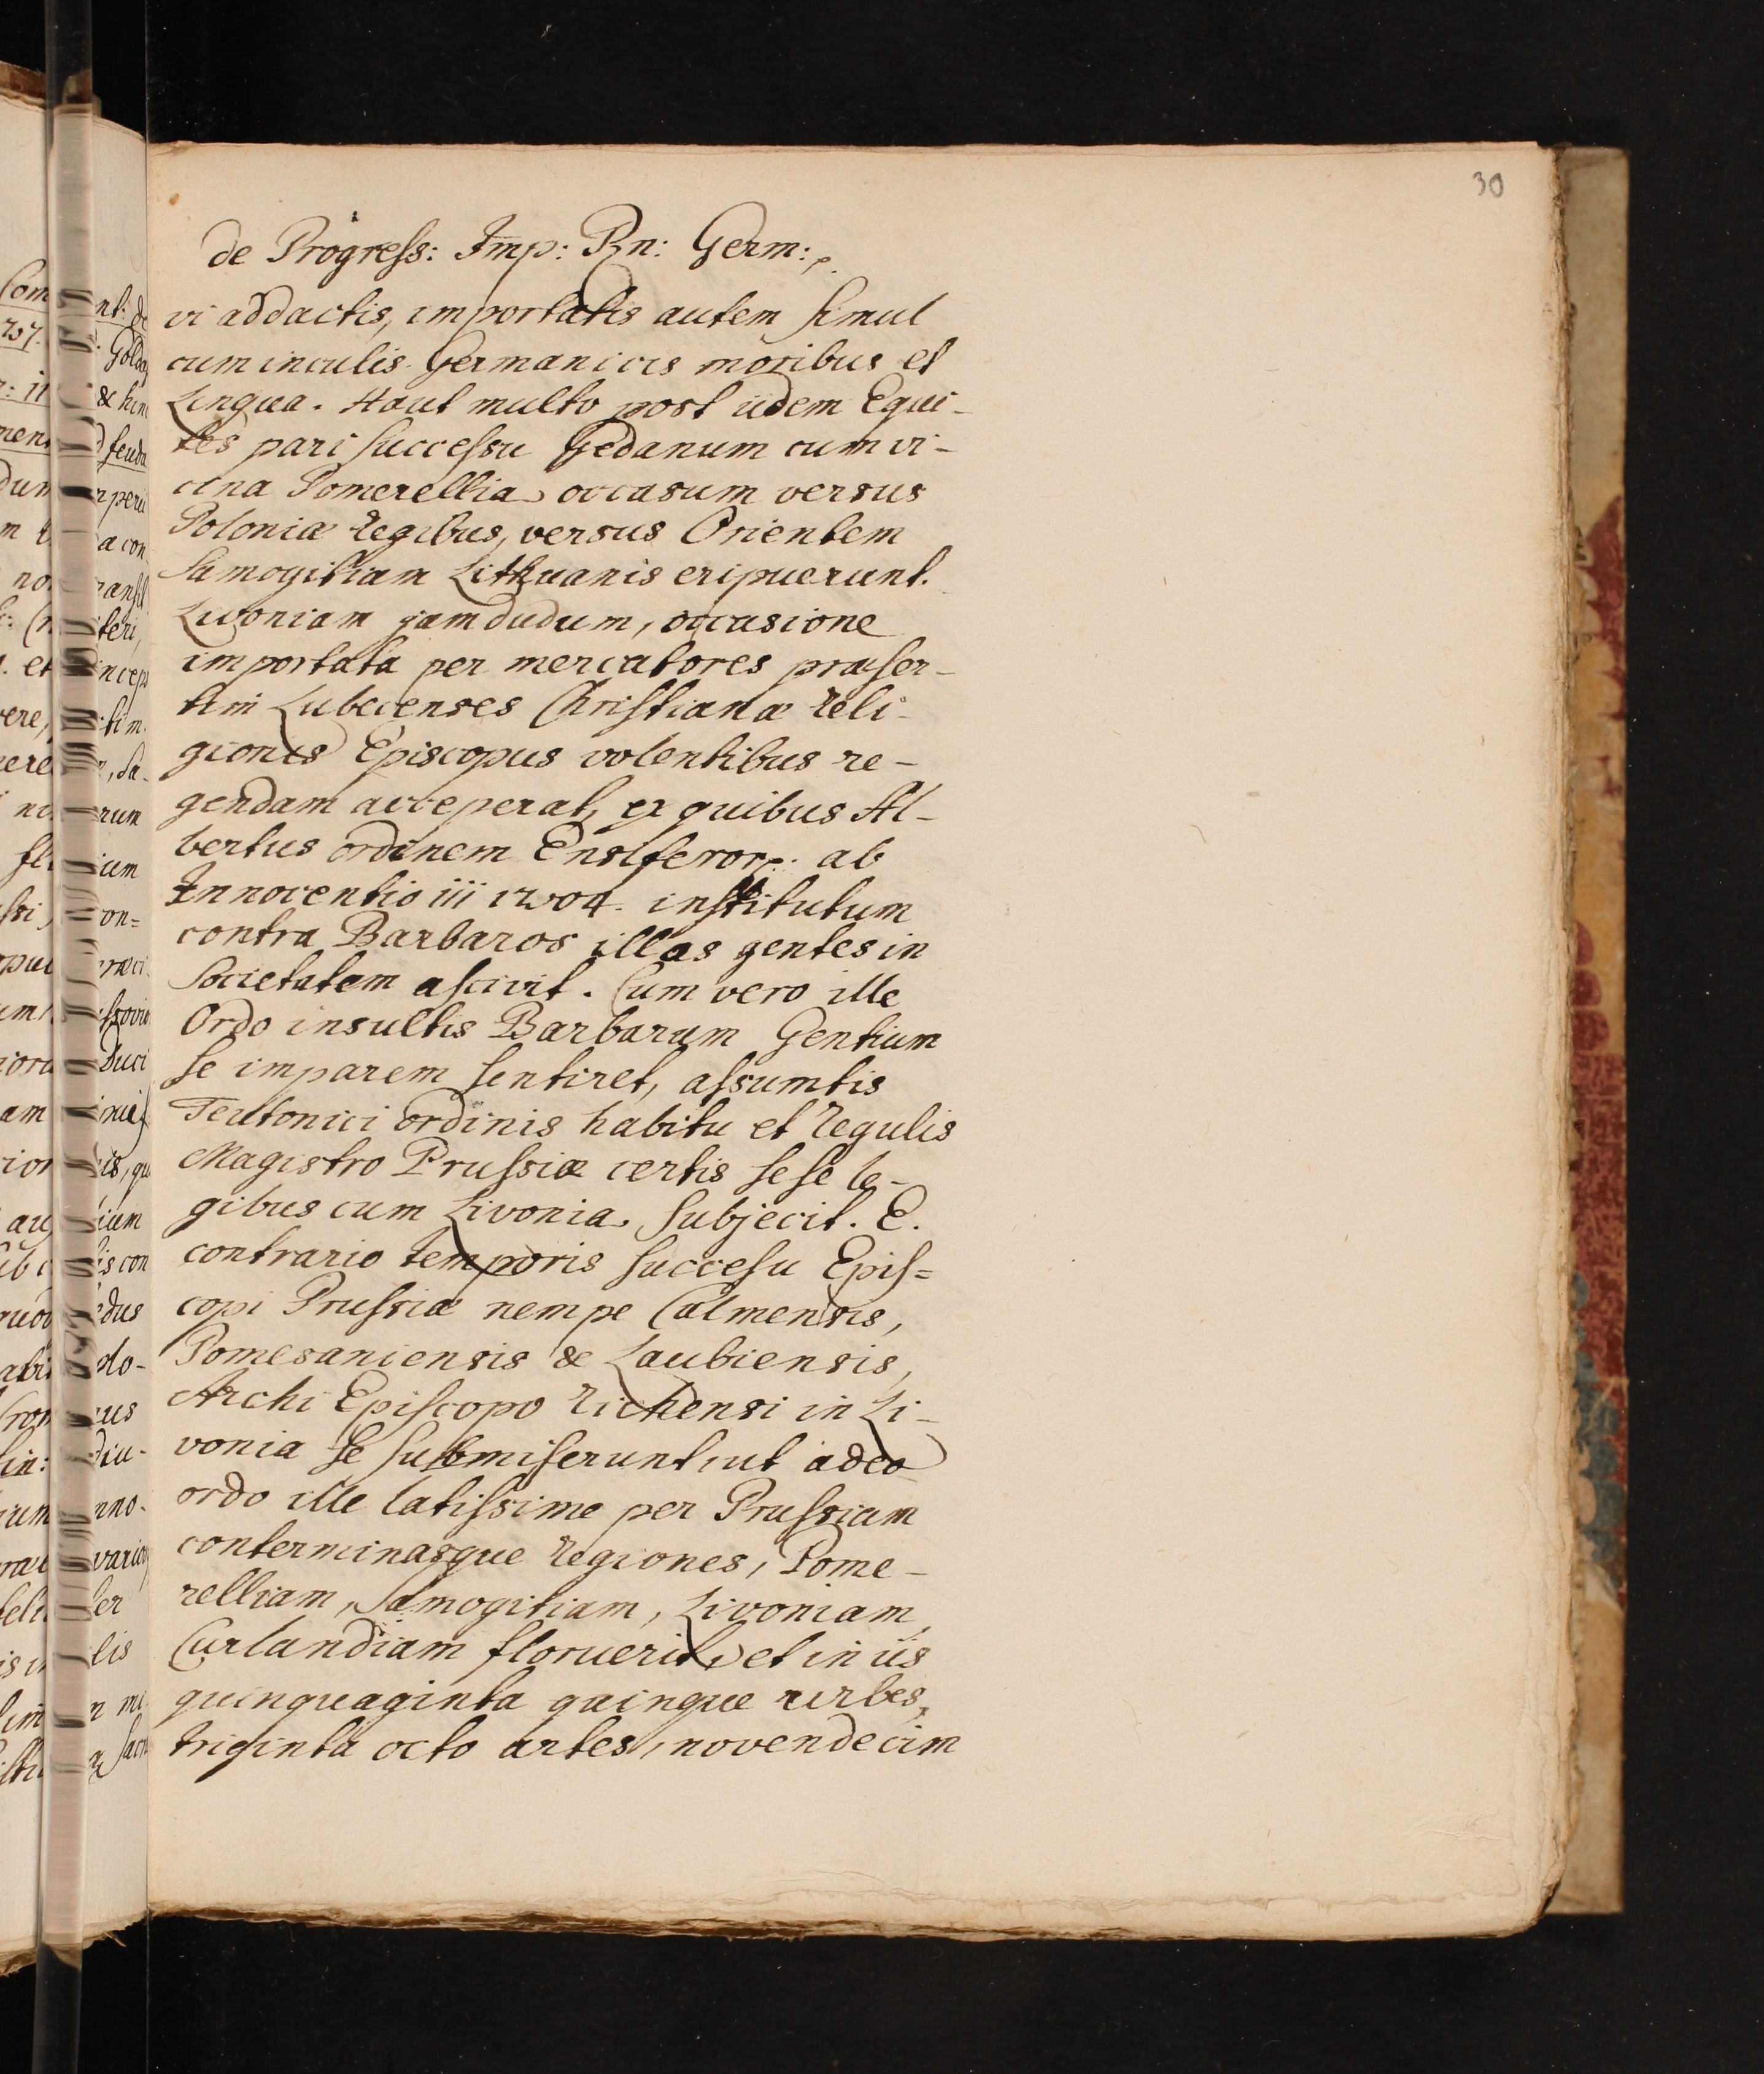 30
de Progress: Imp: Rn: Germ:
vi addactis, importatis autem simul
cum inculis Germanicis moribus et
Lingua. Haut multo post iidem Equi-
tes pari successu Gedanum cum vi-
cina Pomerellia occasum versus
Poloniæ regibus, versus Orientem
Samogitiam Lithuanis eripuerunt.
Livoniam jamdudum, occasione
importata per mercatores præser-
tim Lubecenses Christianæ reli-
gionis Episcopus volentibus re-
gendam acceperat, ex quibus Al-
bertus ordinem Ensiferor. ab
Innocentio iii 1204. institutum
contra Barbaros illas gentes in
Societatem ascivit. Cum vero ille
Ordo insultis Barbarum Gentium
se imparem sentiret, assumtis
Teutonici ordinis habitu et regulis
Magistro Prussiæ certis sese le-
gibus cum Livonia, subjecit. E.
contrario temporis succesu Epis=
copi Prussiæ nempe Calmensis,
Pomesaniensis & Laubiensis,
Archi Episcopo Richensi in Li-
vonia se submiserunt, ut adeo
ordo ille latissime per Prussiam
conterminasque regiones, Pome-
relliam, Samogitiam, Livoniam,
Curlandiam floruerit, et in iis
quinquaginta quinque urbes,
triginta octo artes, novendecim